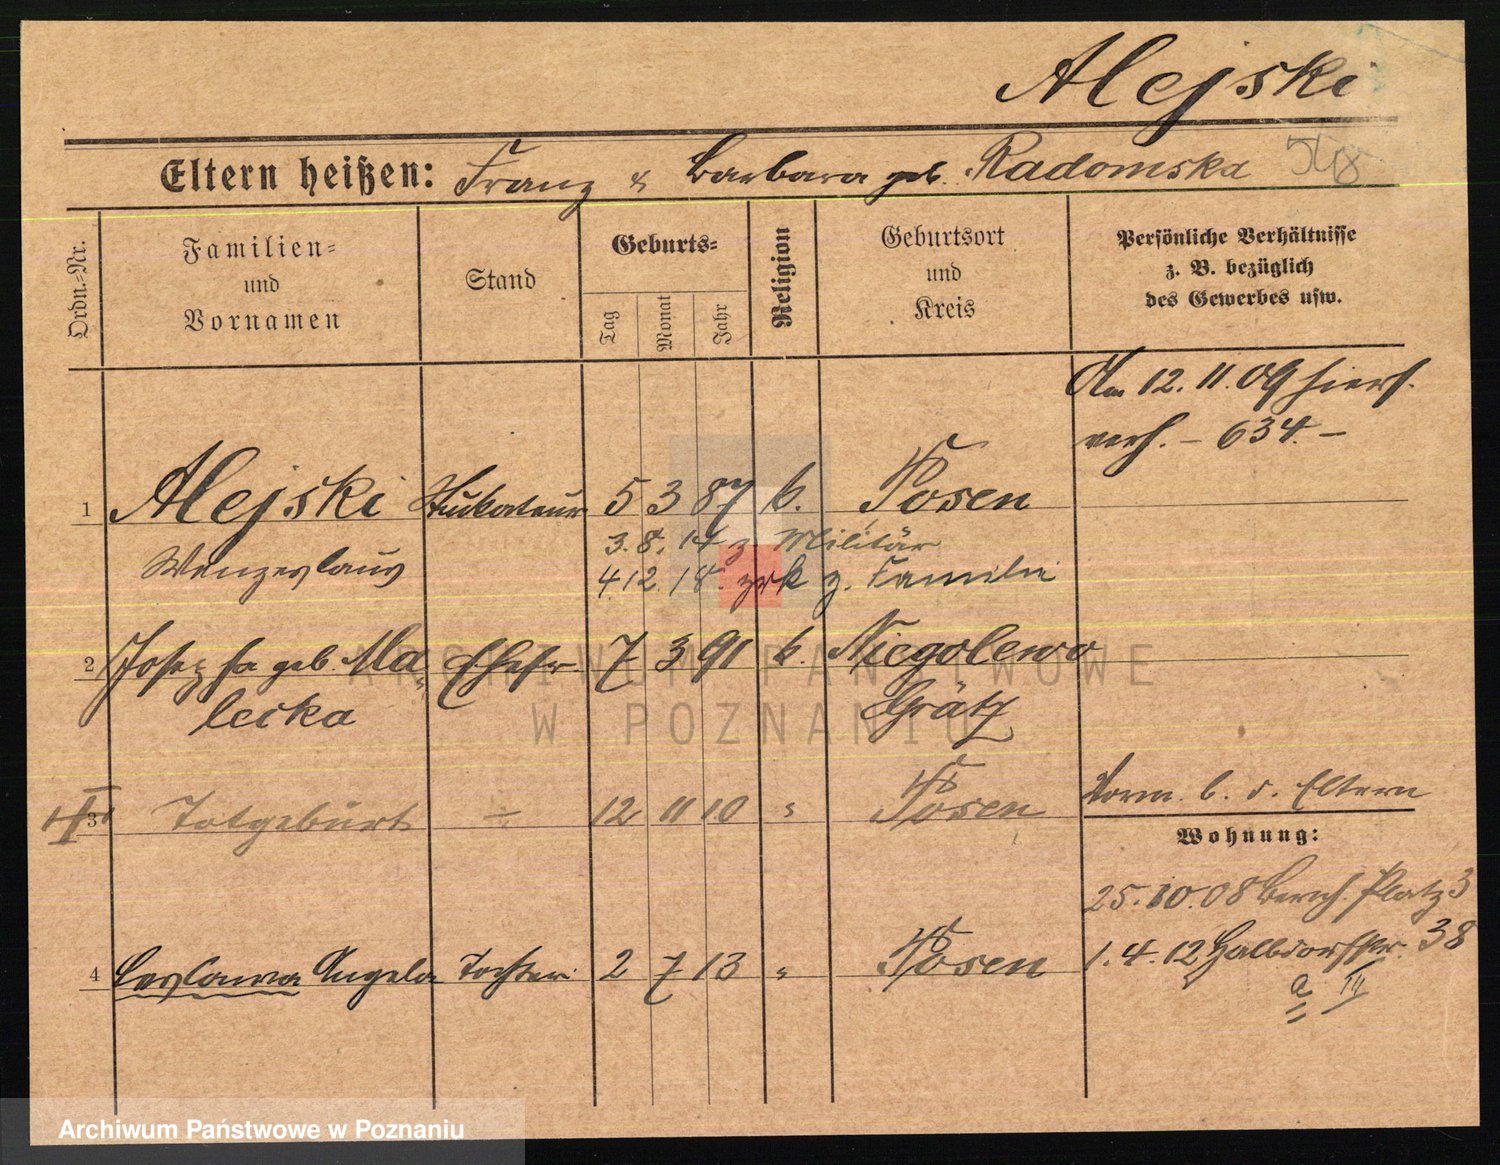 Alejski
Eltern heißen: Franz & Barbara geb. Radomska 548
Ordn.-Nr.
Familien- und Vornamen
Stand
Geburts-
Tag
Monat
Jahr
Religion
Geburtsort und Kreis
Persönliche Verhältnisse z. B. bezüglich des Gewerbes usw.
Am 12. 11. 09 hiers.
verh. – 634. –
1 Alejski Stukateur 5 3 87 k. Posen
Wenzeslaus
3. 8. 14 z Militär
4 12. 18. zrk z. Familie
2 Josepha geb. Ma- Ehefr. 7 3 91 k. Niegolewo
lecka Grätz
3 Totgeburt ÷ 12 11 10 " Posen
Vorm. b. d. Eltern
Wohnung:
25. 10. 08 Bernh. Platz 3
1. 4. 12 Halbdorfstr. 38
a III
4 Leslawa Angela Tochter 2 7 13 " Posen
ARCHIWUM PAŃSTWOWE
W POZNANIU
Archiwum Państwowe w Poznaniu